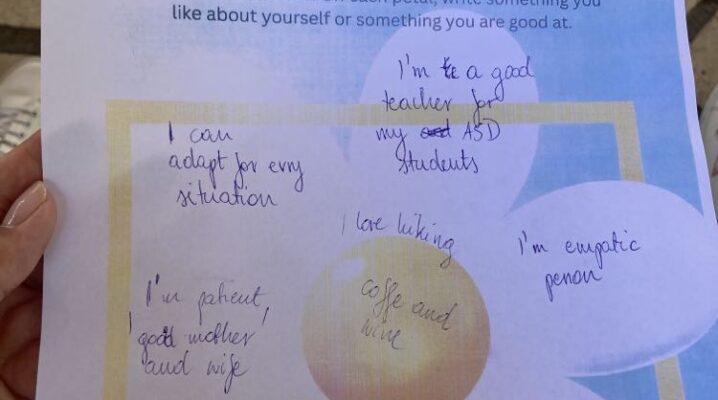 on each petal, write something you
like about yourself or something you are good at.
I'm a good
teacher for
my ASD
students
I can
adapt for evry
situation
I love hiking
I'm empatic
person
coffe and
wine
I'm patient,
good mother
and wife